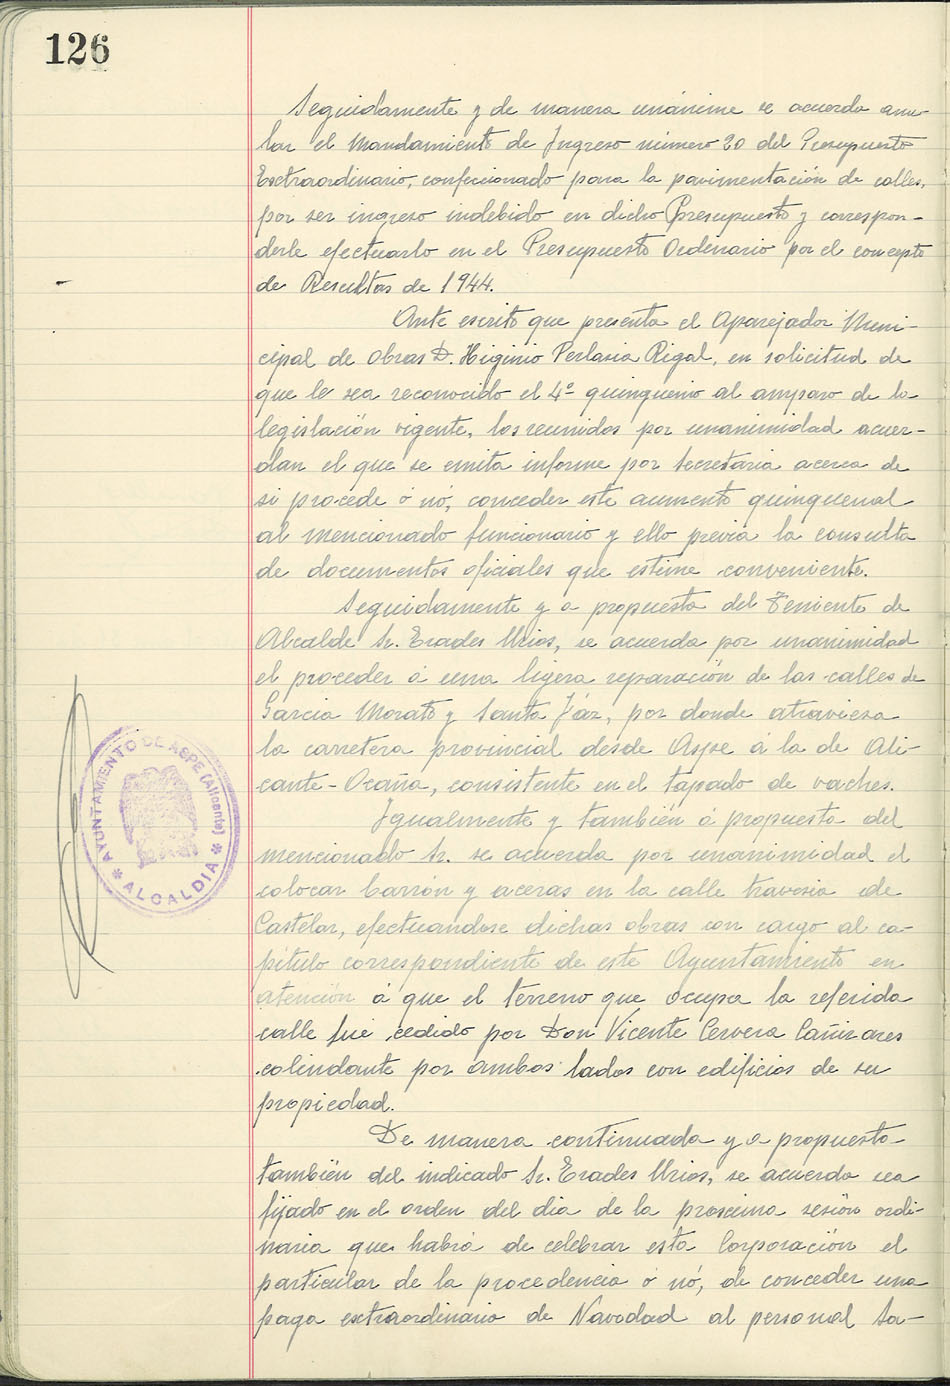 126
Seguidamente y de manera unánime se acuerda anu-
lar el Mandamiento de Ingreso número 20 del Presupuesto
Extraordinario, confeccionado para la pavimentación de calles,
por ser ingreso indebido en dicho Presupuesto y correspon-
derle efectuarlo en el Presupuesto Ordinario por el concepto
de Resultas de 1944.
Ante escrito que presenta el Aparejador Muni-
cipal de Obras D. Higinio Perlasia Rigal, en solicitud de
que le sea reconocido el 4º quinquenio al amparo de la
legislación vigente, los reunidos por unanimidad acuer-
dan el que se emita informe por Secretaria acerca de
si procede ó nó, conceder este aumento quinquenal
al mencionado funcionario y ello previa la consulta
de documentos oficiales que estime conveniente.
Seguidamente y a propuesta del Teniente de
Alcalde Sr. Erades Urios, se acuerda por unanimidad
el proceder á una ligera reparación de las calles de
Garcia Morato y Santa Fáz, por donde atraviesa
la carretera provincial desde Aspe á la de Ali-
cante-Ocaña, consistente en el tapado de vaches.
Igualmente y también á propuesta del
mencionado Sr. se acuerda por unanimidad el
colocar barrón y aceras en la calle travesia de
Castelar, efectuandose dichas obras con cargo al ca-
pítulo correspondiente de este Ayuntamiento en
atención á que el terreno que ocupa la referida
calle fué cedido por Don Vicente Cervera Cañizares
colindante por ambos lados con edificios de su
propiedad.
De manera continuada y a propuesta
también del indicado Sr. Erades Urios, se acuerda sea
fijado en el orden del dia de la proxima sesión ordi-
naria que habrá de celebrar esta Corporación el
particular de la procedencia ó nó, de conceder una
paga extraordinaria de Navidad al personal sa-
AYUNTAMIENTO DE ASPE (Alicante)
* ALCALDIA *